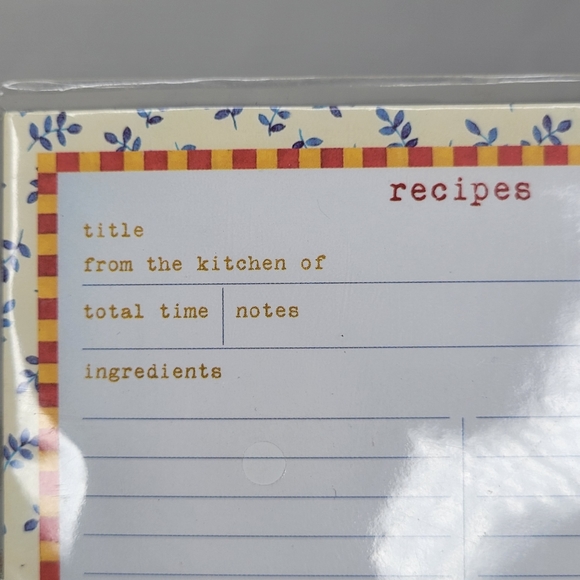 recipes
title
from the kitchen of
total time notes
ingredients